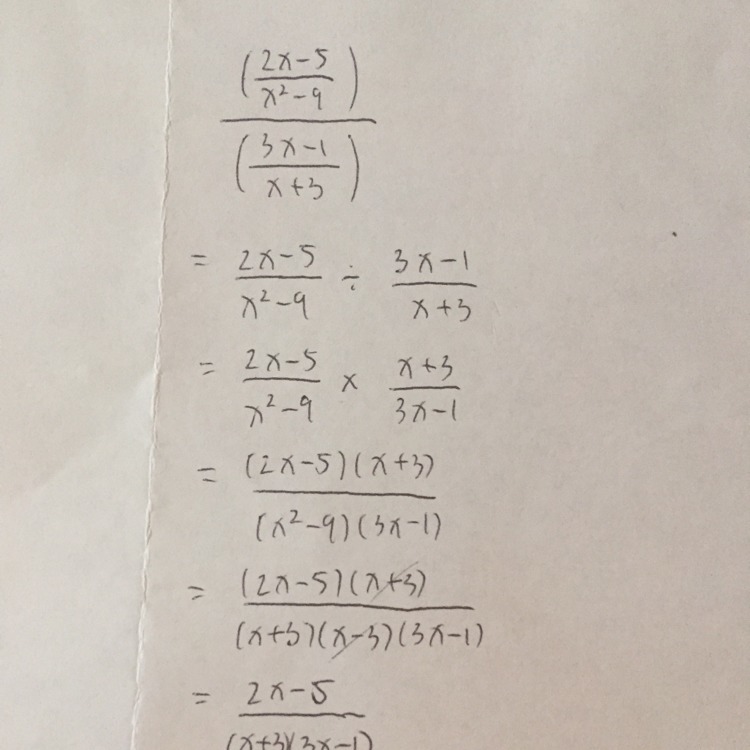 (2x-5
x²-9)
(3x-1
x+3)
= 2x-5 ÷ 3x-1
x²-9 x+3
= 2x-5 × x+3
x²-9 3x-1
= (2x-5)(x+3)
(x²-9)(3x-1)
= (2x-5)(x+3)
(x+3)(x-3)(3x-1)
= 2x-5
(x+3)(3x-1)